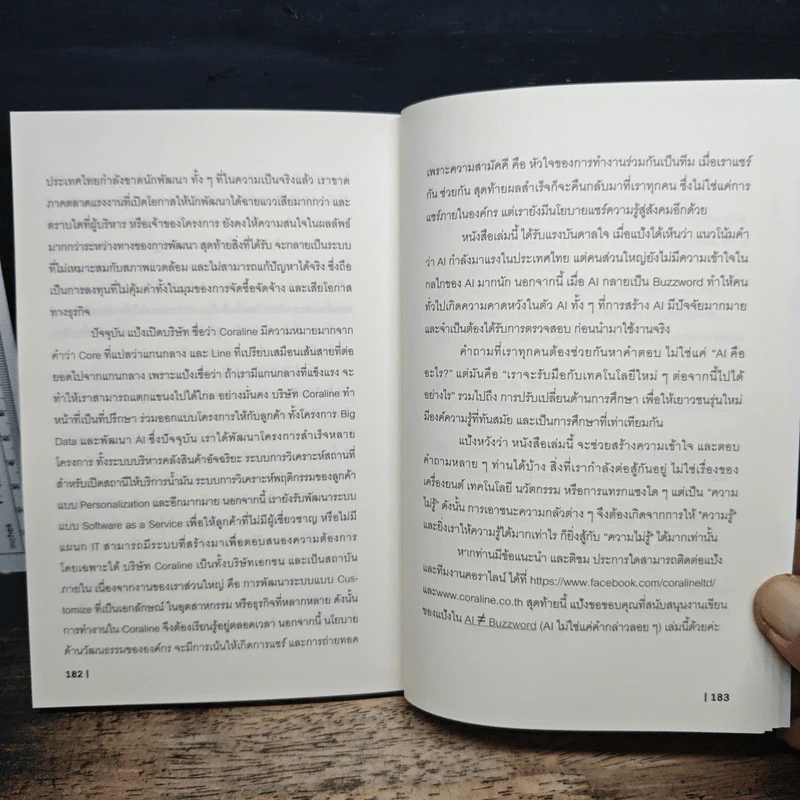 ประเทศไทยกำลังขาดนักพัฒนา ทั้ง ๆ ที่ในความเป็นจริงแล้ว เราขาด
ภาคตลาดแรงงานที่เปิดโอกาสให้นักพัฒนาได้ฉายแววเสียมากกว่า และ
ตราบใดที่ผู้บริหาร หรือเจ้าของโครงการ ยังคงให้ความสนใจในผลลัพธ์
มากกว่าระหว่างทางของการพัฒนา สุดท้ายสิ่งที่ได้รับ จะกลายเป็นระบบ
ที่ไม่เหมาะสมกับสภาพแวดล้อม และไม่สามารถแก้ปัญหาได้จริง ซึ่งถือ
เป็นการลงทุนที่ไม่คุ้มค่าทั้งในมุมของการจัดซื้อจัดจ้าง และเสียโอกาส
ทางธุรกิจ
ปัจจุบัน แป้งเปิดบริษัท ชื่อว่า Coraline มีความหมายมากจาก
คำว่า Core ที่แปลว่าแกนกลาง และ Line ที่เปรียบเสมือนเส้นสายที่ต่อ
ยอดไปจากแกนกลาง เพราะแป้งเชื่อว่า ถ้าเรามีแกนกลางที่แข็งแรง จะ
ทำให้เราสามารถแตกแขนงไปได้ไกล อย่างมั่นคง บริษัท Coraline ทำ
หน้าที่เป็นที่ปรึกษา ร่วมออกแบบโครงการให้กับลูกค้า ทั้งโครงการ Big
Data และพัฒนา AI ซึ่งปัจจุบัน เราได้พัฒนาโครงการสำเร็จหลาย
โครงการ ทั้งระบบบริหารคลังสินค้าอัจฉริยะ ระบบการวิเคราะห์สถานที่
สำหรับเปิดสถานีให้บริการน้ำมัน ระบบการวิเคราะห์พฤติกรรมของลูกค้า
แบบ Personalization และอีกมากมาย นอกจากนี้ เรายังรับพัฒนาระบบ
แบบ Software as a Service เพื่อให้ลูกค้าที่ไม่มีผู้เชี่ยวชาญ หรือไม่มี
แผนก IT สามารถมีระบบที่สร้างมาเพื่อตอบสนองความต้องการ
โดยเฉพาะได้ บริษัท Coraline เป็นทั้งบริษัทเอกชน และเป็นสถาบัน
ภายใน เนื่องจากงานของเราส่วนใหญ่ คือ การพัฒนาระบบแบบ Cus-
tomize ที่เป็นเอกลักษณ์ ในอุตสาหกรรม หรือธุรกิจที่หลากหลาย ดังนั้น
การทำงานใน Coraline จึงต้องเรียนรู้อยู่ตลอดเวลา นอกจากนี้ นโยบาย
ด้านวัฒนธรรมขององค์กร จะมีการเน้นให้เกิดการแชร์ และการถ่ายทอด
182 |
เพราะความสามัคคี คือ หัวใจของการทำงานร่วมกันเป็นทีม เมื่อเราแชร์
กัน ช่วยกัน สุดท้ายผลสำเร็จก็จะคืนกลับมาที่เราทุกคน ซึ่งไม่ใช่แค่การ
แชร์ภายในองค์กร แต่เรายังมีนโยบายแชร์ความรู้สู่สังคมอีกด้วย
หนังสือเล่มนี้ ได้รับแรงบันดาลใจ เมื่อแป้งได้เห็นว่า แนวโน้มคำ
ว่า AI กำลังมาแรงในประเทศไทย แต่คนส่วนใหญ่ยังไม่มีความเข้าใจใน
กลไกของ AI มากนัก นอกจากนี้ เมื่อ AI กลายเป็น Buzzword ทำให้คน
ทั่วไปเกิดความคาดหวังในตัว AI ทั้ง ๆ ที่การสร้าง AI มีปัจจัยมากมาย
และจำเป็นต้องได้รับการตรวจสอบ ก่อนนำมาใช้งานจริง
คำถามที่เราทุกคนต้องช่วยกันหาคำตอบ ไม่ใช่แค่ “AI คือ
อะไร?” แต่มันคือ “เราจะรับมือกับเทคโนโลยีใหม่ ๆ ต่อจากนี้ไปได้
อย่างไร” รวมไปถึง การปรับเปลี่ยนด้านการศึกษา เพื่อให้เยาวชนรุ่นใหม่
มีองค์ความรู้ที่ทันสมัย และเป็นการศึกษาที่เท่าเทียมกัน
แป้งหวังว่า หนังสือเล่มนี้ จะช่วยสร้างความเข้าใจ และตอบ
คำถามหลาย ๆ ท่านได้บ้าง สิ่งที่เรากำลังต่อสู้กันอยู่ ไม่ใช่เรื่องของ
เครื่องยนต์ เทคโนโลยี นวัตกรรม หรือการแทรกแซงใด ๆ แต่เป็น “ความ
ไม่รู้” ดังนั้น การเอาชนะความกลัวต่าง ๆ จึงต้องเกิดจากการให้ “ความรู้”
และยิ่งเราให้ความรู้ได้มากเท่าไร ก็ยิ่งสู้กับ “ความไม่รู้” ได้มากเท่านั้น
หากท่านมีข้อแนะนำ และติชม ประการใดสามารถติดต่อแป้ง
และทีมงานคอราไลน์ ได้ที่ https://www.facebook.com/coralineltd/
และwww.coraline.co.th สุดท้ายนี้ แป้งขอขอบคุณที่สนับสนุนงานเขียน
ของแป้งใน AI ≠ Buzzword (AI ไม่ใช่แค่คำกล่าวลอย ๆ) เล่มนี้ด้วยค่ะ
| 183